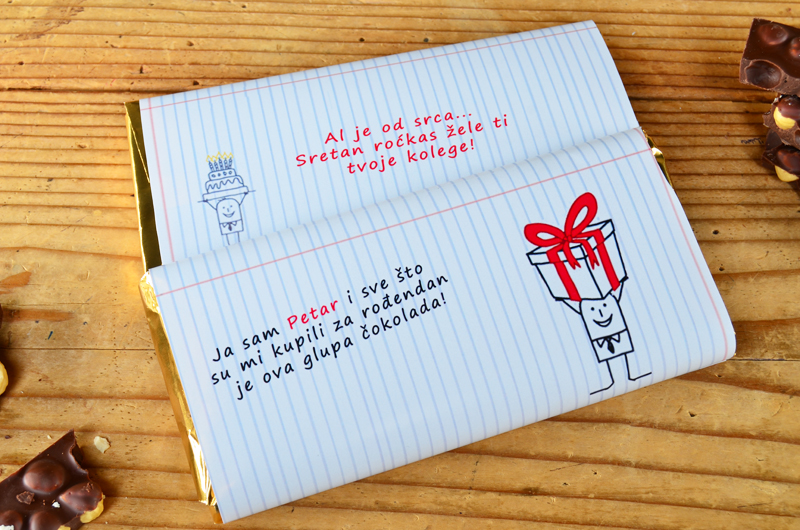 Al je od srca...
Sretan roćkas žele ti
tvoje kolege!
Ja sam Petar i sve što
su mi kupili za rođendan
je ova glupa čokolada!